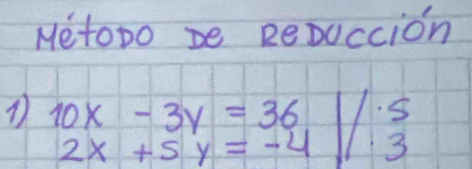 Método De Reducción
1) 10x - 3y = 36 // .5
2x + 5y = -4 // .3